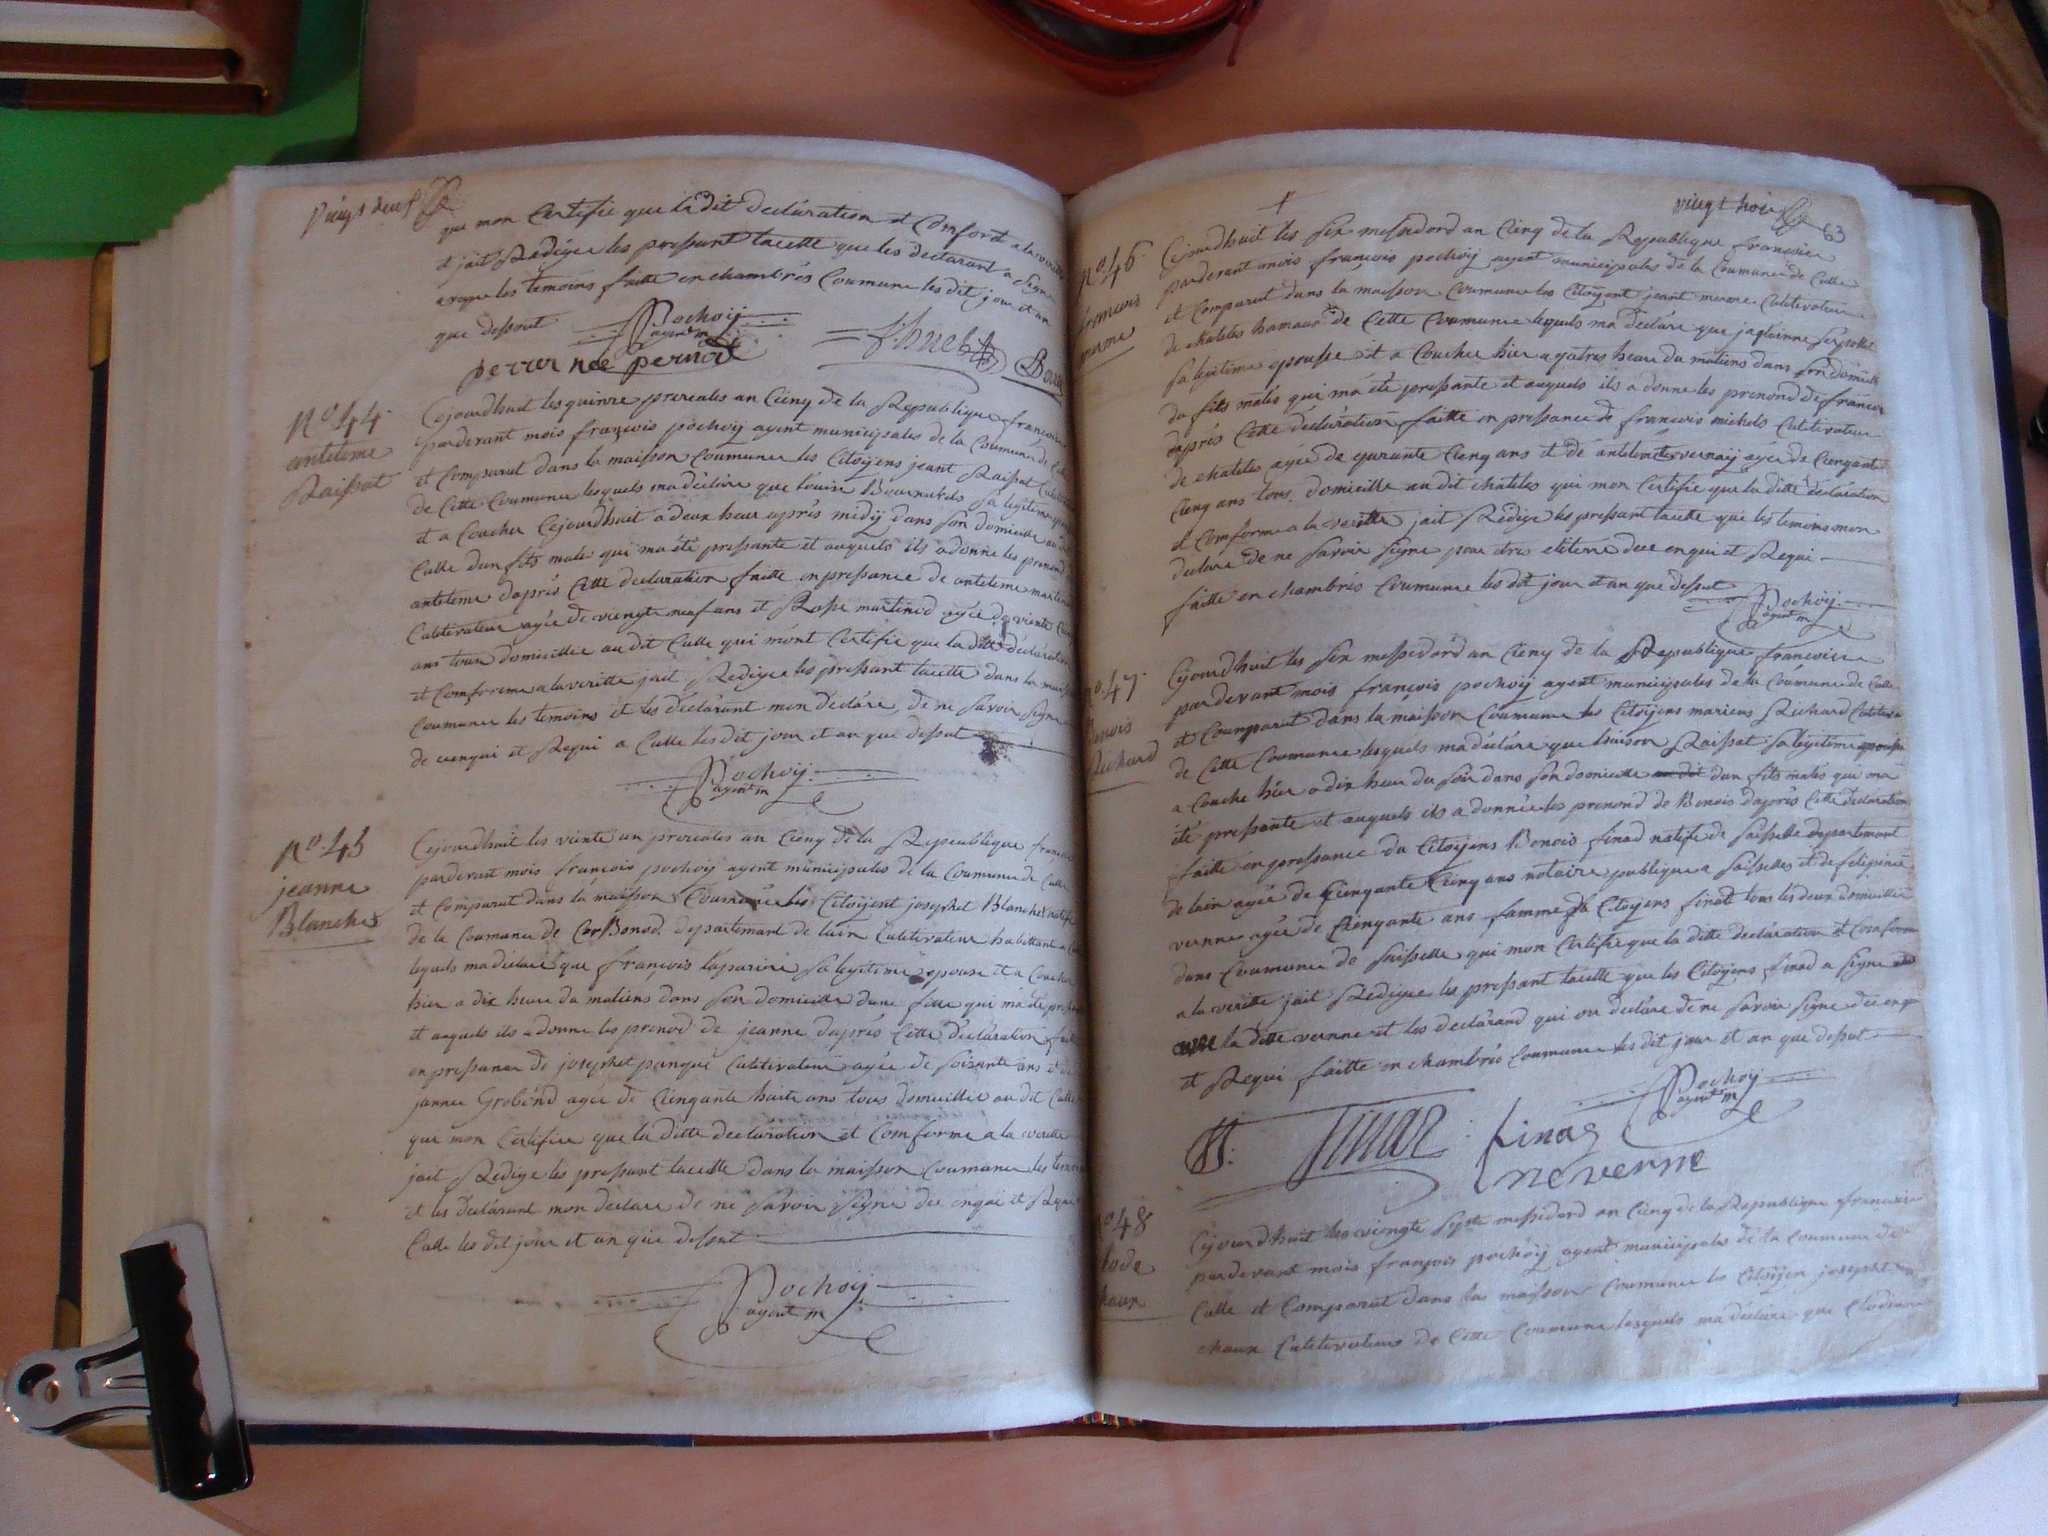 vingt deux
que mon Certifie que la dit declaration et Conford a la verite
et jait Rédige les pressant lacette que les declarant a Signe
aveque les temoins faitte en chambrés Coumune les dit jour et an
que dessut
Pochoy
agent m
perrer nee pernod
N° 44
antelme
Raissat
Cejourdhuit les quinze prereales an Cienq de la Republique francoise
parderant mois françois pochoy agent municipales de la Coumune de
et Comparut dans la maisson Coumune les Citoyens jeant Raissat
de Cette Coumune lesquels ma déclare que louise Bournards sa legitime
et a Coucher Cejourdhuit a deux heur aprés midy dans son domicille au
Culle dun fits male qui ma été pressante et auquels ils a donne les prenond
antelme daprés Cette declaration faitte en pressance de antelme
Cultivateur agée de viengte neuf ans et Rosse martinod agée de viente
ans tous domicillie au dit Culle qui mont Certifie que la ditte déclaration
et Comforme a la veritte jait Redige les pressant lacette dans la maisson
Coumune les temoins et les declarant mon declare de ne Savoir Signe
de cenqui et Requi a Culle les dit jour et an que dessut
Pochoy
agent m
N° 45
jeanne
Blanchet
Cejourdhuit les viente un prereales an Cienq de la Republique
parderant mois françois pochoy agent municipales de la Coumune de Culle
et Comparut dans la maisson Coumune les Citoyent josephet Blanchet natife
de la Coumune de CorBonod departemant de lain Cultivateur habittant a
lequels ma declare que françois laparire sa legitime epouse et a Coucher
hier a dix heure du matiens dans Son domicille dune fille qui ma été
et auquels ils a donne les prenod de jeanne daprés Cette declaration
en pressance de josephet panqué Cultivateur agée de soizante ans et de
jannee Grobénd agée de Cienquante huite ans tous domicillie au dit Culle
qui mon Certifie que la ditte declaration et Comforme a la veritte
jait Rédige les pressant lacette dans la maisson Coumune les
et les declarant mon declare de ne Savoir Signe dee enqui et
Culle les dit jour et an que dessut
Pochoy
agent m
vingt trois
63
N° 46
francois
meme
Cejourdhuit les Six messidord an Cienq de la Republique francoise
parderant mois françois pochoy agent municipales de la Coumune de Culle
et Comparut dans la maisson Coumune les Citoyent jeant meme Cultivateur
de chateles hamaux de Cette Coumune lequels ma declare que jaqueinne
sa legitime epousse et a Coucher hier a quatres heur du matiens dans son domicille
du fits males qui ma été pressante et auquels ils a donne les prenond de francois
daprés Cette declaration faitte en pressance de francois michels Cultivateur
de chateles agée de quarante Cienq ans et de agée de Cienquante
Cienq ans tous domicillie au dit chateles qui mon Certifie que la ditte declaration
et Comforme a la veritte jait Rédige les pressant lacette que les temoins mon
declare de ne Savoir Signe pour etre dee enqui et Requi
faitte en chambrés Coumune les dit jour et an que dessut
Pochoy
agent m
N° 47
Benois
Richard
Cejourdhuit les Six messidord an Cienq de la Republique francoise
pardevant mois françois pochoy agent municipales de la Coumune de Culle
et Coumparut dans la maisson Coumune les Citoyens Richard
de Cette Coumune lesquels ma declare que louison Raissat sa legitime epousse
a Couche hier a dix heur du soir dans son domicille au dit dun fits males qui ma
été pressante et auquels ils a donnée les prenond de Benois daprés Cette declaration
faitte en pressance du Citoyens Benois finod natife de Saisselle departemant
de lain agée de Cienquante Cienq ans notaire publique a Saisselles et de
vernne agée de Cienquante ans famme du Citoyens finod tous les deux domicillie
dans Coumune de Saisselle qui mon Certifie que la ditte declaration et Comforme
a la veritte jait Rédige les pressant lacette que les Citoyens finod a Signe
la ditte vernne et les declarand qui on declare de ne Savoir Signe dee enqui
et Requi faitte en chambrés Coumune les dit jour et an que dessut
Pochoy
agent m
finod
ne verne
N° 48
Cejourdhuit les viengte Septe messidord an Cienq de la Republique francoise
pardevant mois françois pochoy agent municipales de la Coumune de
Culle et Comparut dans la maisson Coumune les Citoyen josephet
chaux Cultivateur de Cette Coumune lesquels ma declare que